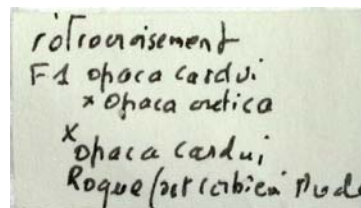 rétrocroisement
F1 opaca cardui
x opaca cretica
x
opaca cardui
Roque